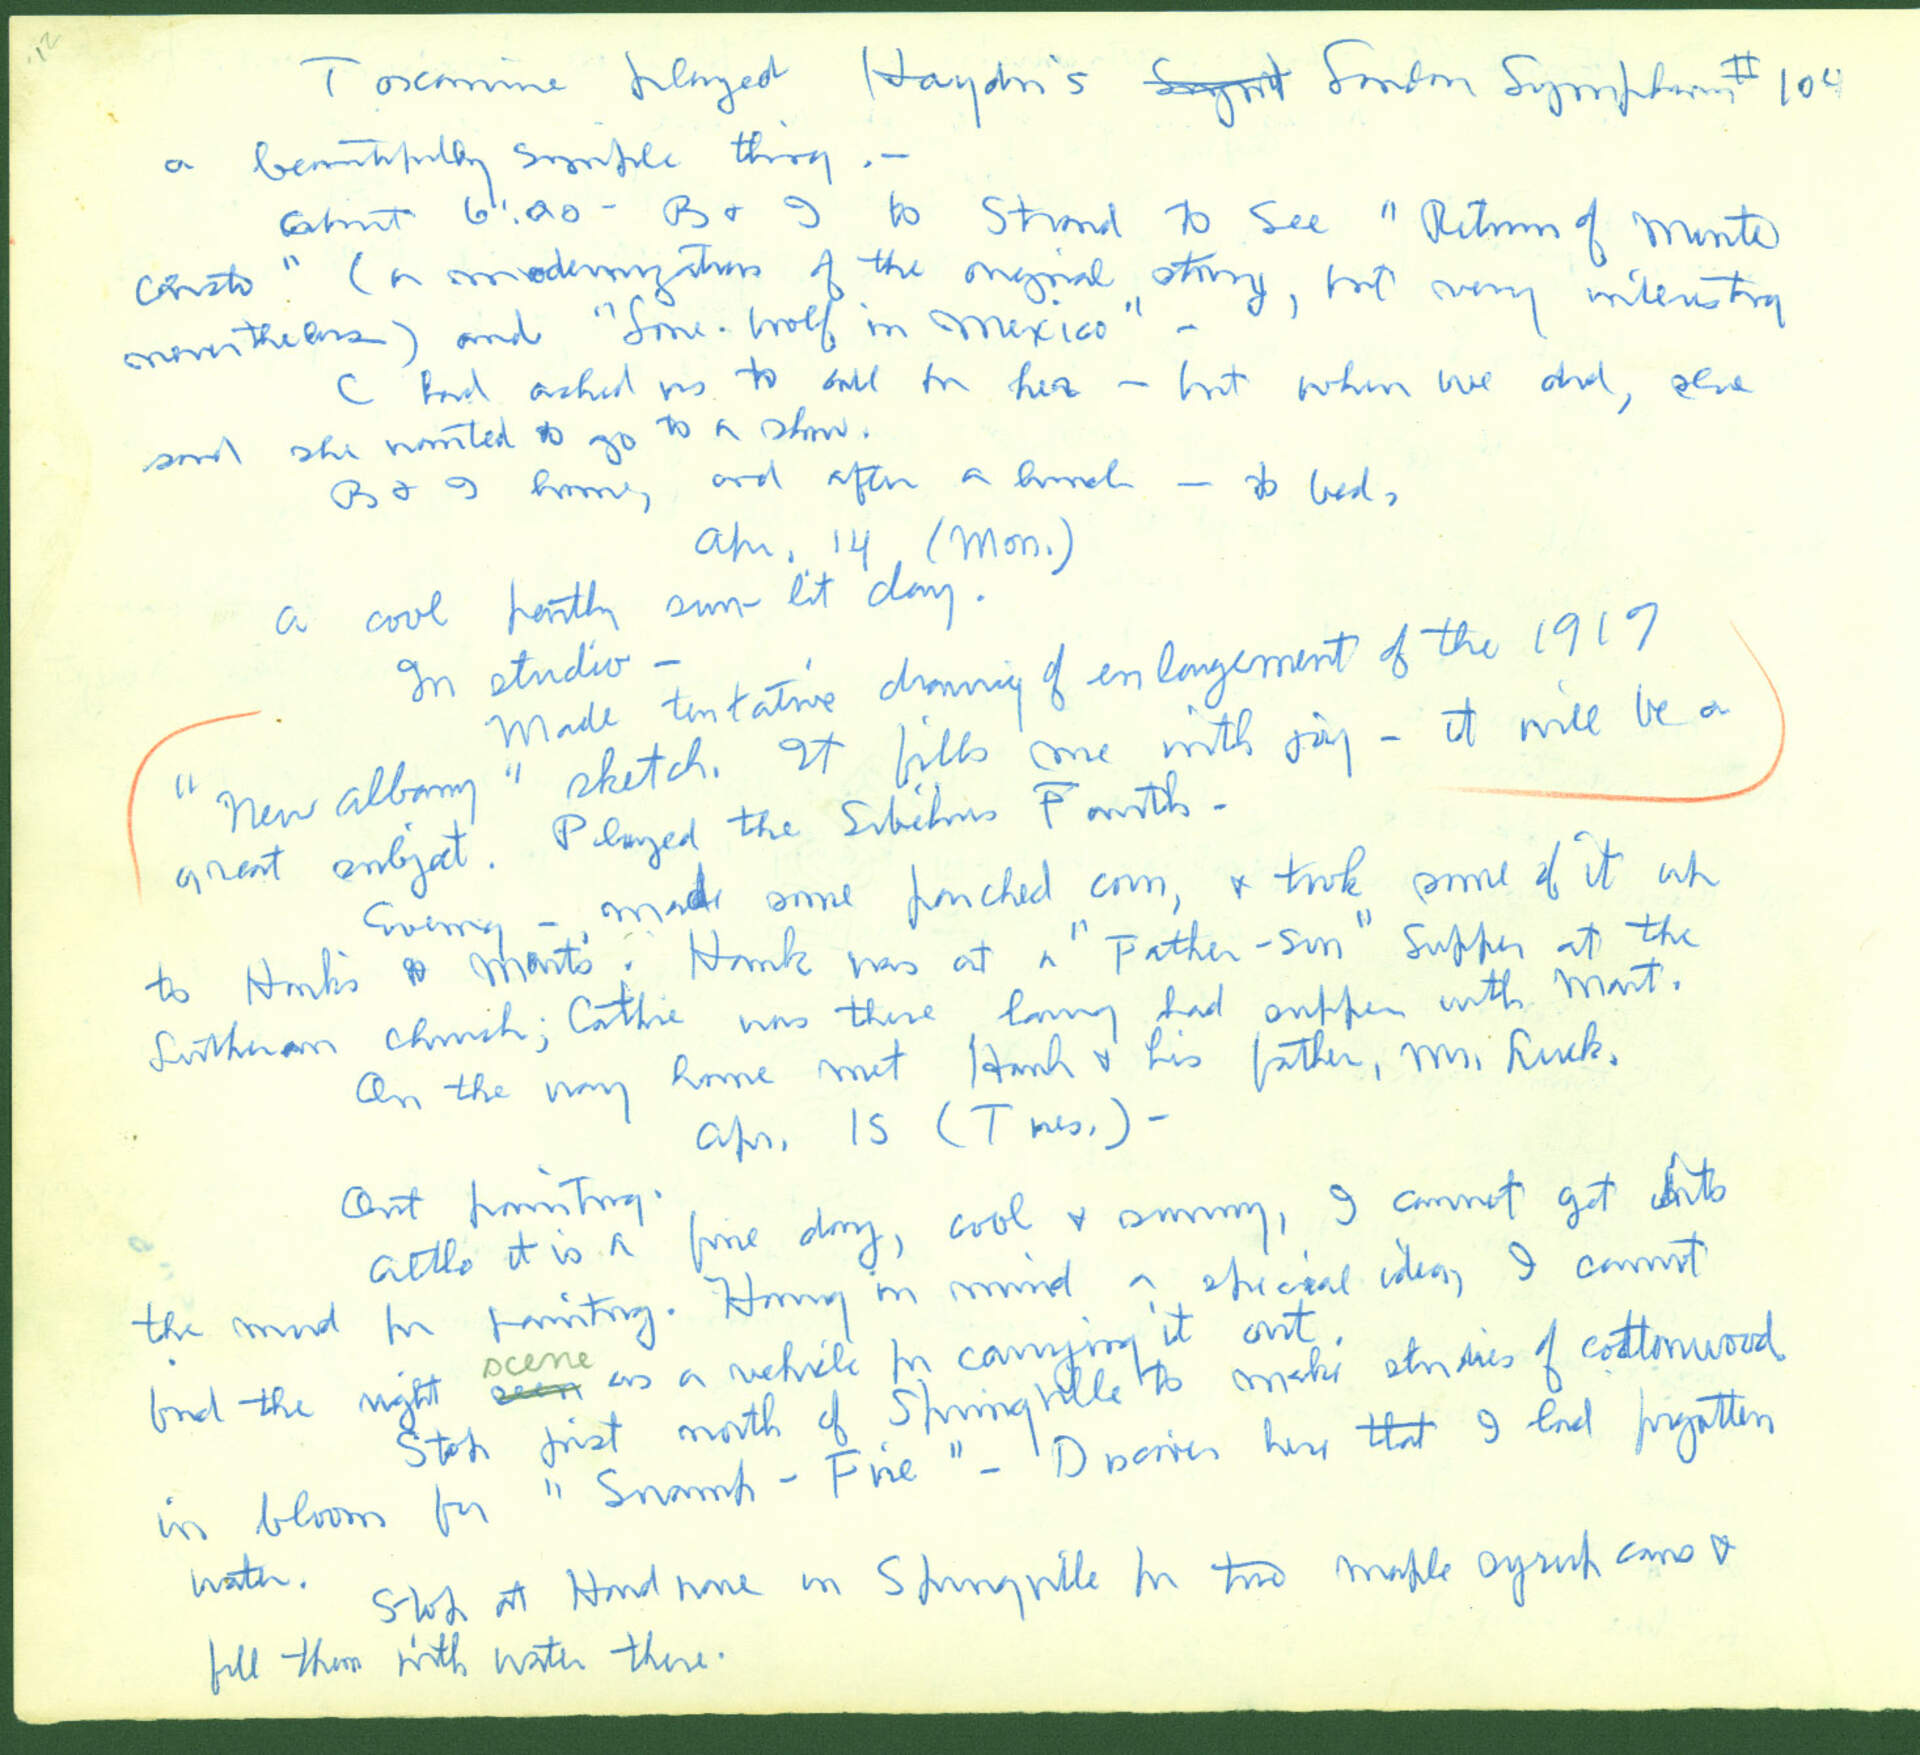 Toscanine played Haydn's London Symphony #104
a beautifully simple thing. —
about 6:00 - B & I to Strand to see "Return of Monte
Cristo" (a modernization of the original story, but very interesting
nonetheless) and "Lone-Wolf in Mexico" -
C had asked us to call for her - but when we did, she
said she wanted to go to a show.
B & I home, and after a lunch - to bed.
Apr. 14 (Mon.)
A cool partly sun-lit day.
In studio -
Made tentative drawing of enlargement of the 1917
"New Albany" sketch. It fills me with joy - it will be a
great subject. Played the Sibelius Fourth -
Evening -, made some parched corn, & took some of it up
to Hank's & Mart's. Hank was at a "Father-Son" supper at the
Lutheran church; Cathie was there having had supper with Mart.
On the way home met Hank & his father, Mr. Ruck.
Apr. 15 (Tues.) -
Out painting.
Altho it is a fine day, cool & sunny, I cannot get into
the mood for painting. Having in mind a special idea, I cannot
find the right seen scene as a vehicle for carrying it out.
Stop just north of Springville to make studies of cottonwood
in bloom for "Swamp-Fire" - Discover here that I had forgotten
water.
Stop at Hardware in Springville for two maple syrup cans &
fill them with water there.